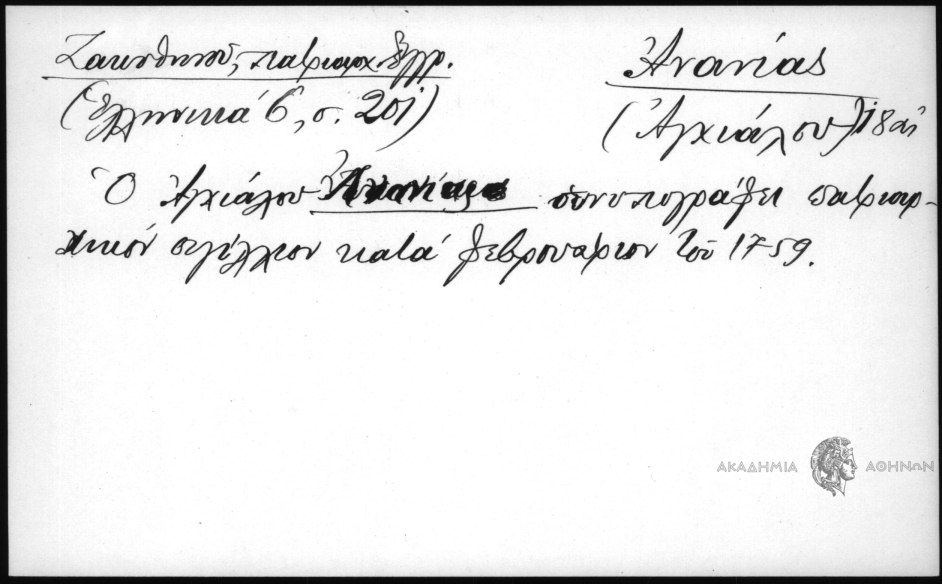 Ζακυθηνοῦ, πατριαρχ. ἔγγρ.
(Ἑλληνικά 6, σ. 201)
Ἀνανίας
(Ἀγχιάλου) 18 αἰ
Ὁ Ἀγχιάλου Ἀνανίας συνυπογράφει πατριαρ-
χικόν σιγίλλιον κατά φεβρουάριον τοῦ 1759.
ΑΚΑΔΗΜΙΑ ΑΘΗΝΩΝ